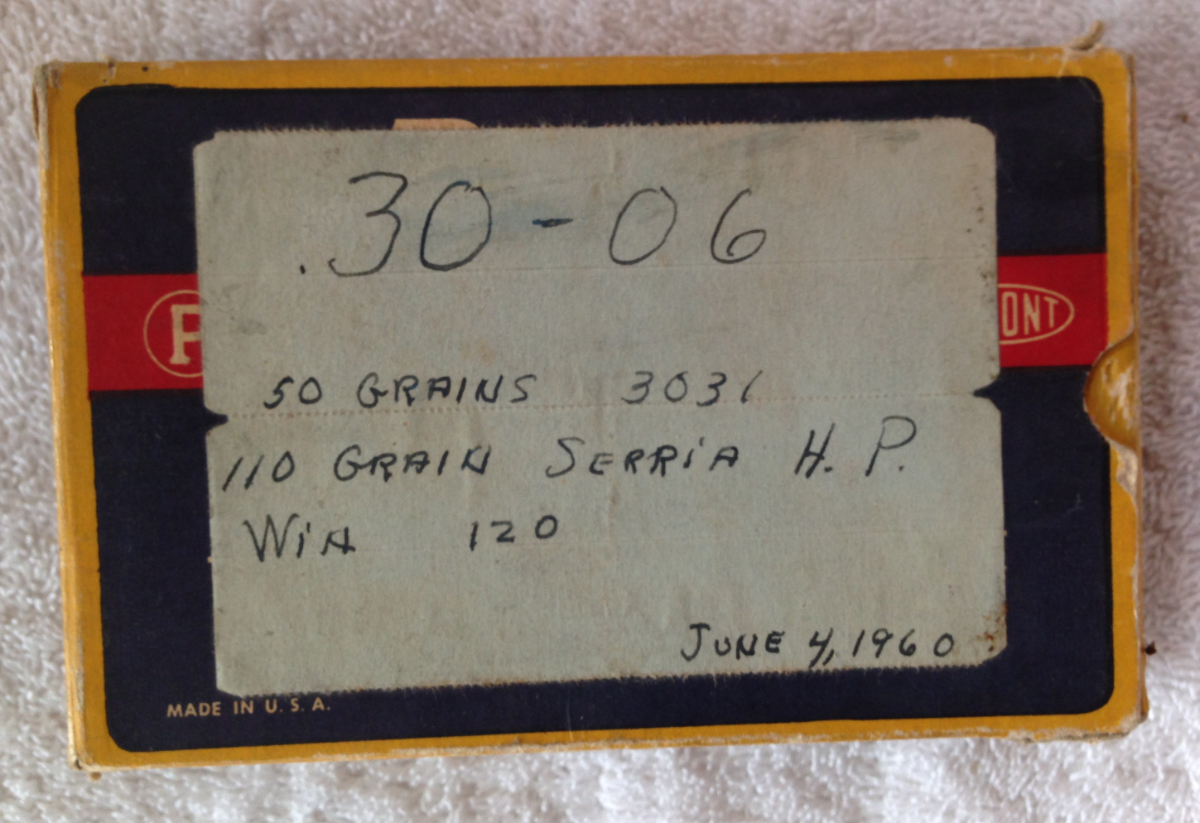 .30-06
P
ONT
50 GRAINS 3031
110 GRAIN SERRIA H. P.
WIN 120
JUNE 4, 1960
MADE IN U. S. A.